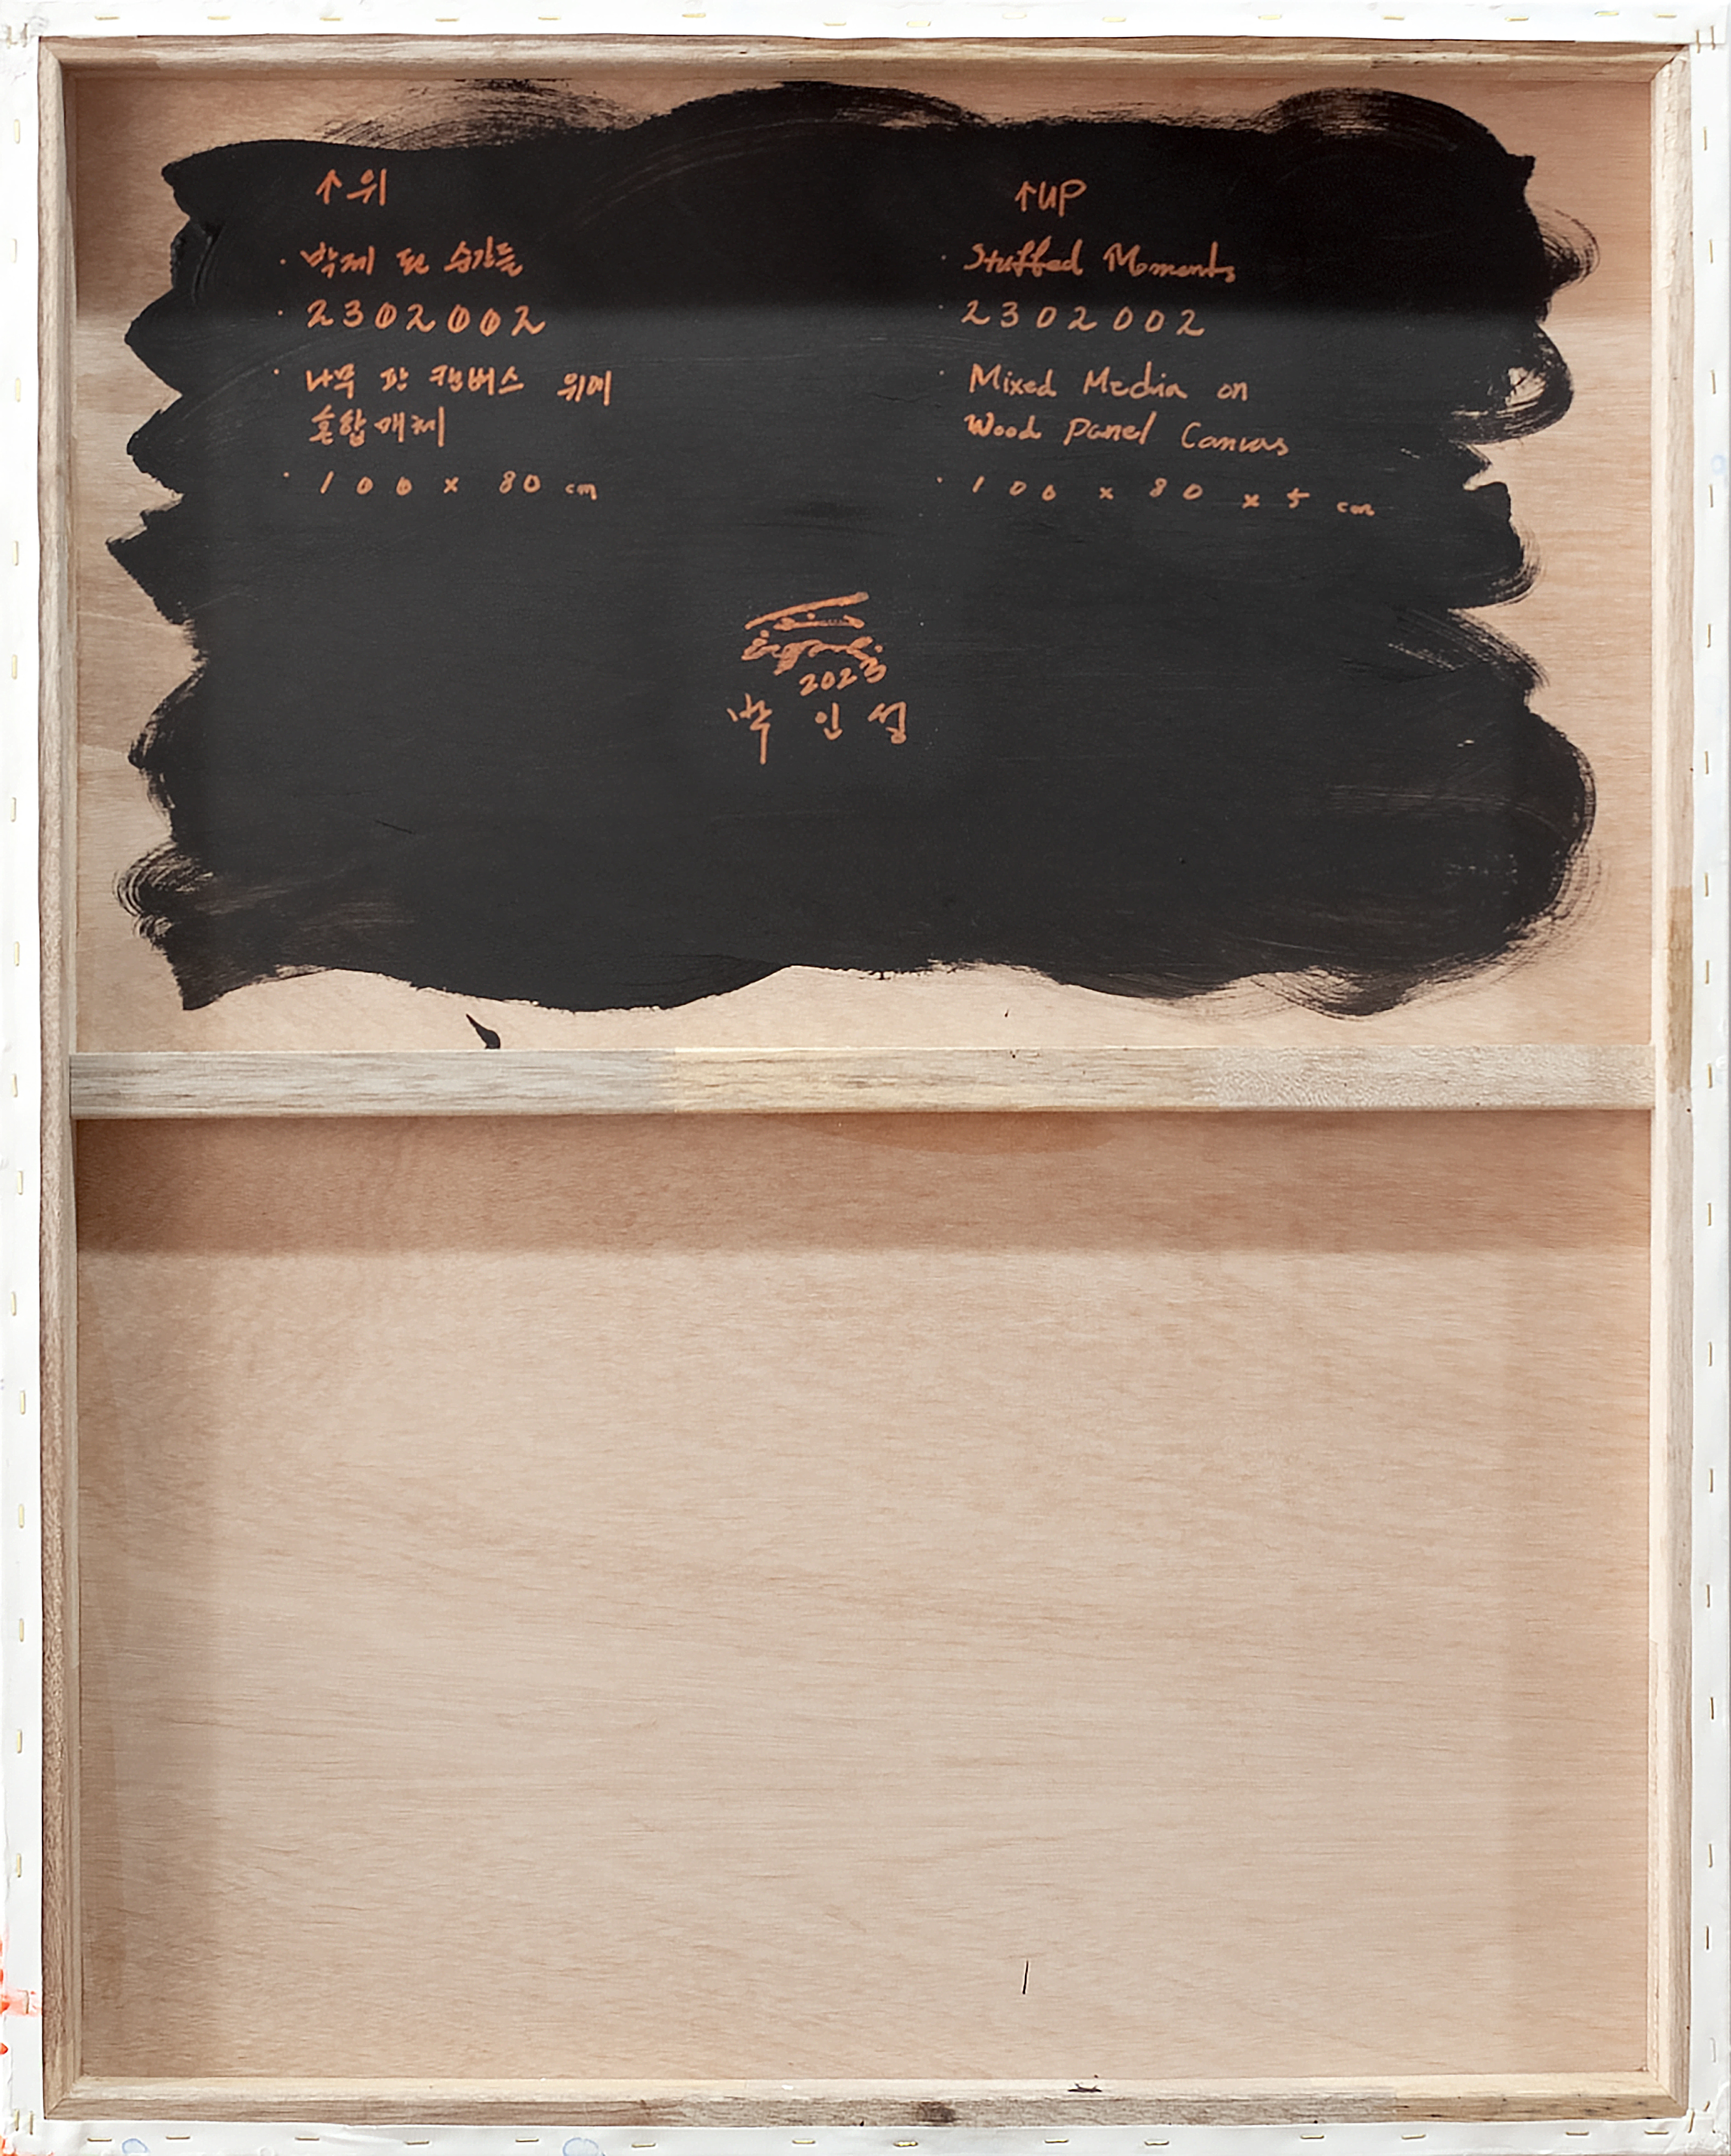 ↑위
· 박제 된 순간들
· 2302002
· 나무 판 캔버스 위에
혼합매체
· 100 x 80 cm
↑UP
· Stuffed Moments
· 2302002
· Mixed Media on
Wood Panel Canvas
· 100 x 80 x 5 cm
2023
박인성